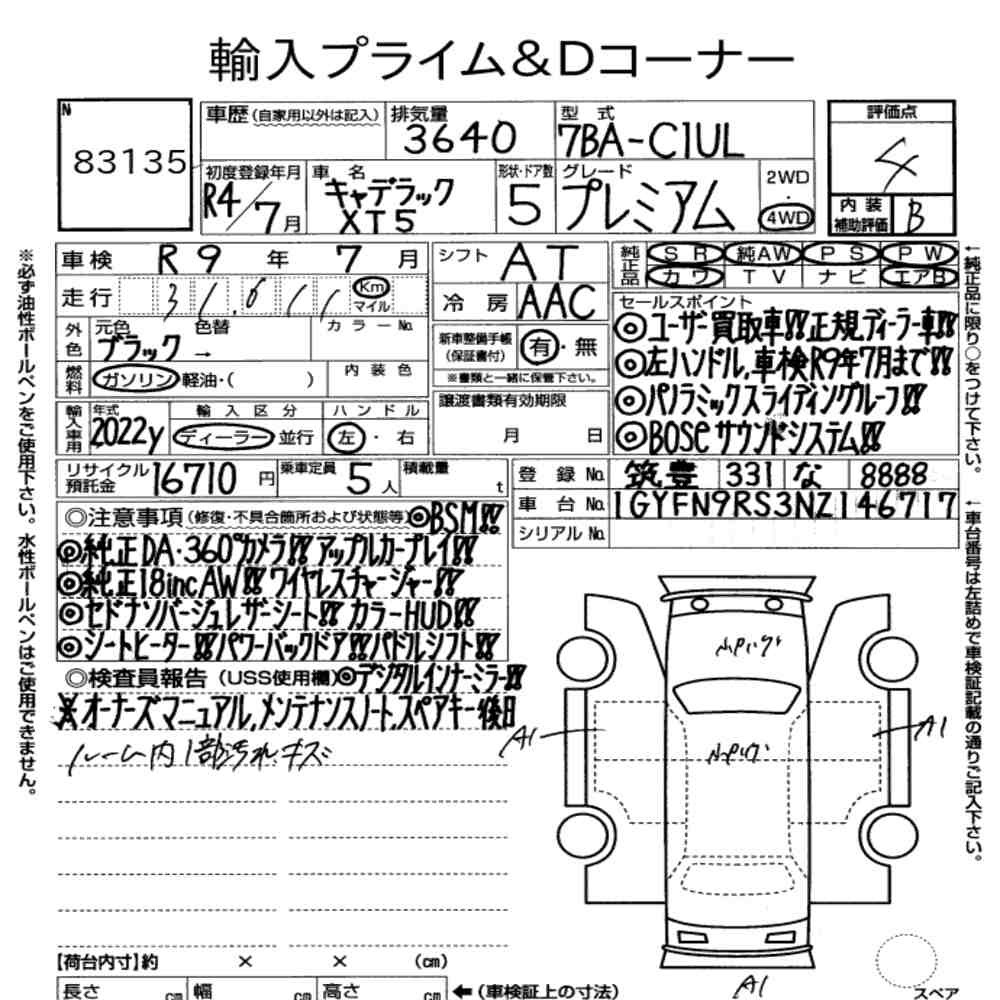 輸入プライム&Dコーナー
N
83135
車歴(自家用以外は記入)
排気量
3640
型 式
7BA-C1UL
評価点
4
初度登録年月
R4/7月
車 名
キャデラック
XT5
形状・ドア数
5
グレード
プレミアム
2WD
・
4WD
内 装
補助評価
B
車検 R9 年 7 月
シフト AT
純正品
SR 純AW PS PW
カワ TV ナビ エアB
走行 31,611 Km
マイル
冷房 AAC
外色
元色 色替 カラーNo.
ブラック →
新車整備手帳
(保証書付)
有・無
※書類と一緒に保管下さい。
燃料
ガソリン 軽油・( )
内 装 色
譲渡書類有効期限
月 日
セールスポイント
◎ユーザー買取車!!正規ディーラー車!!
◎左ハンドル,車検R9年7月まで!!
◎パノラミックスライディングルーフ!!
◎BOSEサウンドシステム!!
輸入車用
年式
2022y
輸 入 区 分
ディーラー 並行
ハ ン ド ル
左・右
リサイクル
預託金
16710円
乗車定員
5人
積載量
t
登 録 No. 筑豊 331 な 8888
車 台 No. 1GYFN9RS3NZ146717
シリアル No.
◎注意事項(修復・不具合箇所および状態等)◎BSM!!
◎純正DA・360°カメラ!!アップルカープレイ!!
◎純正18incAW!!ワイヤレスチャージャー!!
◎セドナソバージュレザーシート!!カラーHUD!!
◎シートヒーター!!パワーバックドア!!パドルシフト!!
◎検査員報告(USS使用欄)◎デジタルインナーミラー!!
※オーナーズマニュアル,メンテナンスノート,スペアキー後日
ルーム内1部汚れ、キズ
A1
A1
A1
【荷台内寸】約 × × (cm)
長さ cm 幅 cm 高さ cm ←(車検証上の寸法)
スペア
※必ず油性ボールペンをご使用下さい。水性ボールペンはご使用できません。
←純正品に限り○をつけて下さい。
←車台番号は左詰めで車検証記載の通りご記入下さい。